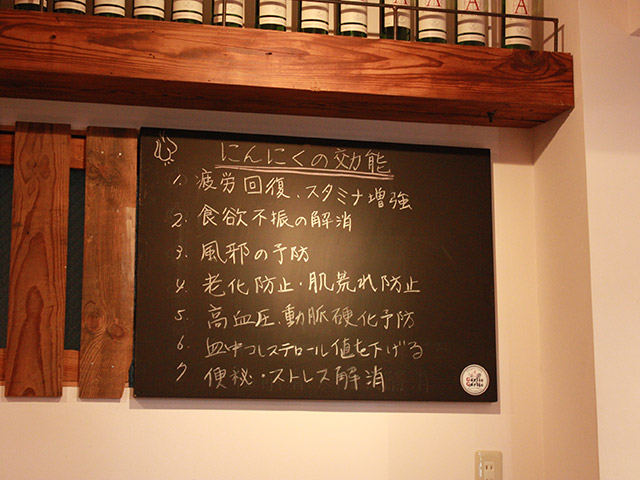 にんにくの効能
1. 疲労回復、スタミナ増強
2. 食欲不振の解消
3. 風邪の予防
4. 老化防止・肌荒れ防止
5. 高血圧、動脈硬化予防
6. 血中コレステロール値を下げる
7 便秘・ストレス解消
Garlic